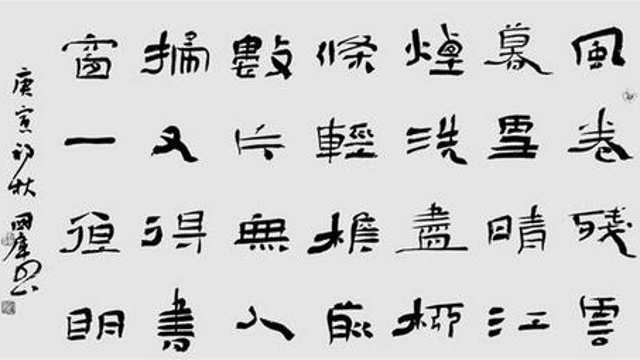 風卷殘雲
暮雪晴江
煙洗盡柳
條輕檐前
數片無人
掃又得書
窗一夜明
庚寅初秋